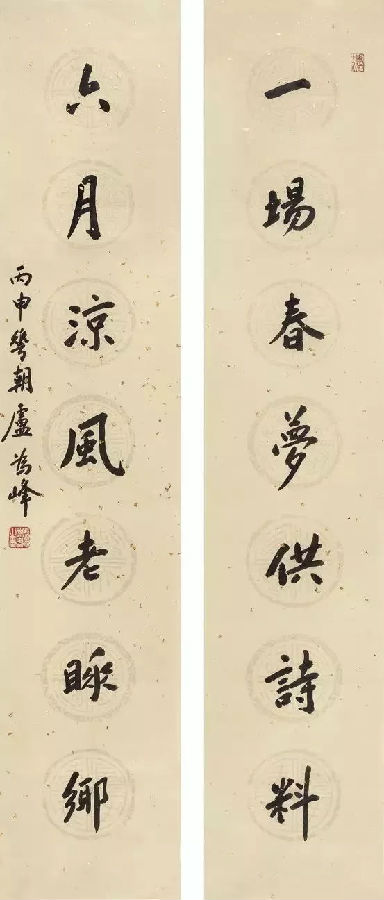 一場春夢供詩料
六月涼風老睡鄉
丙申華朝盧為峰